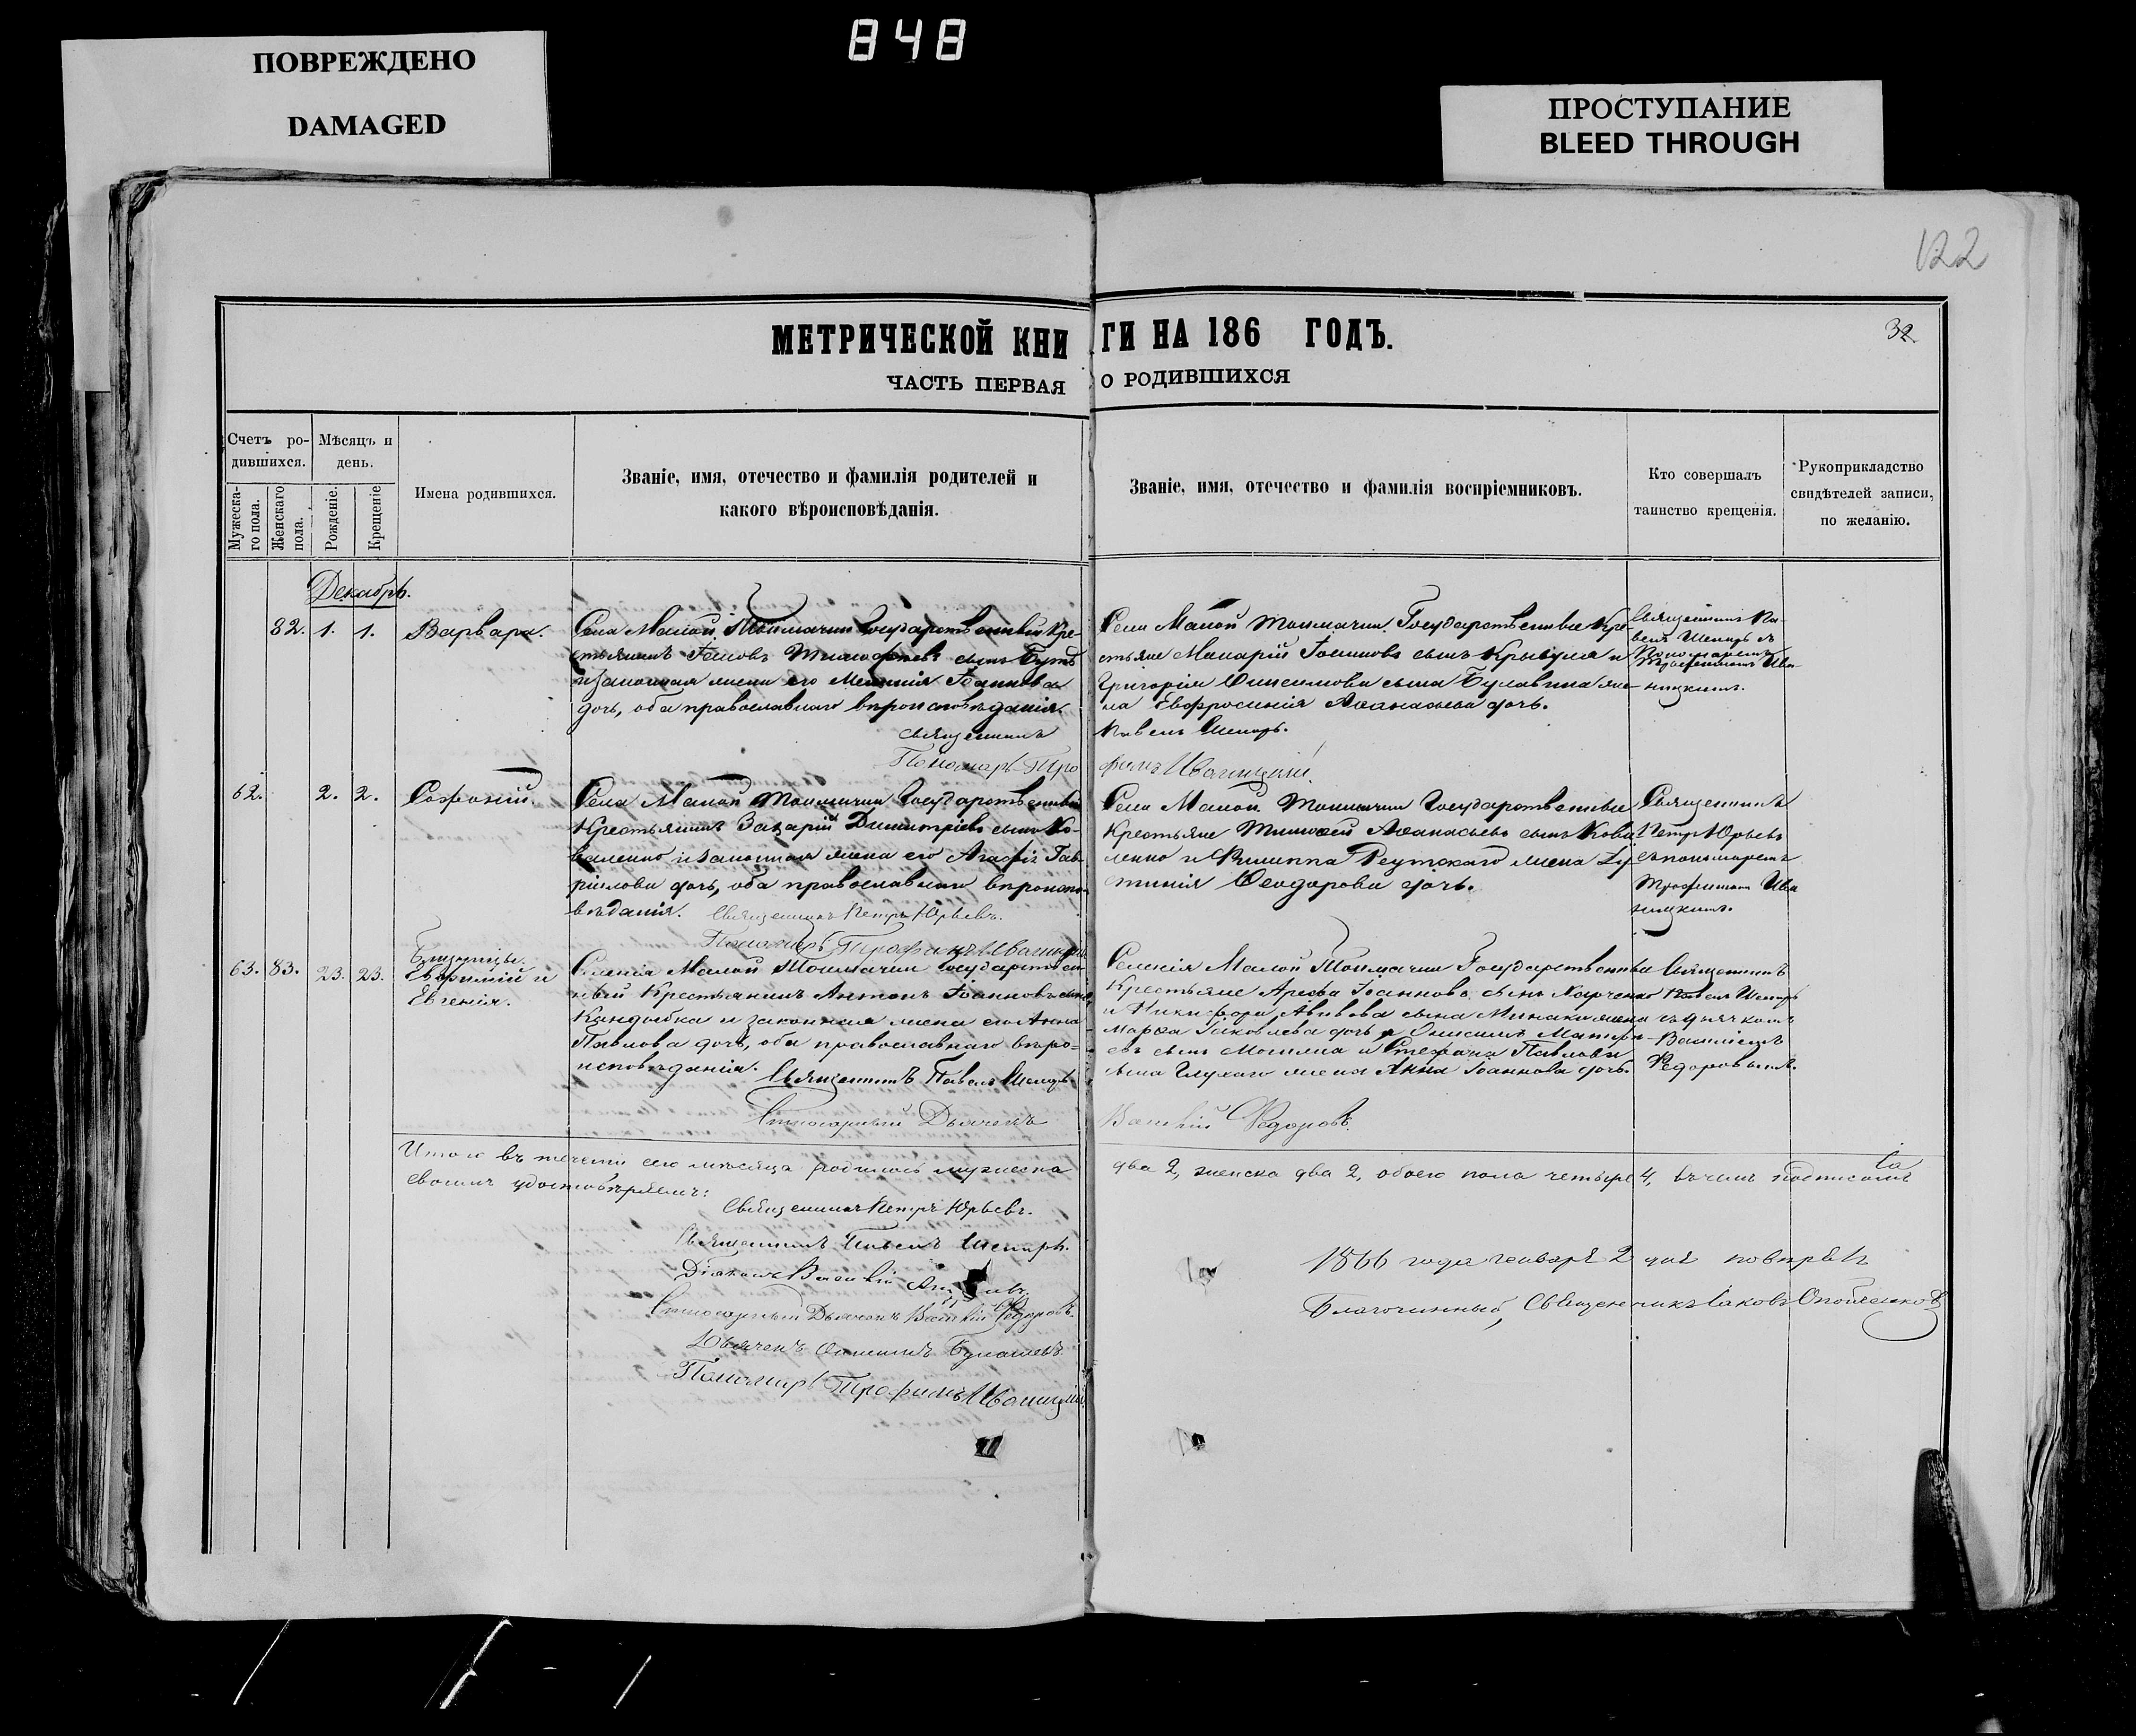 848
ПОВРЕЖДЕНО
DAMAGED
ПРОСТУПАНИЕ
BLEED THROUGH
122
32
МЕТРИЧЕСКОЙ КНИ ГИ НА 186 ГОДЪ.
ЧАСТЬ ПЕРВАЯ О РОДИВШИХСЯ
Счетъ ро-
дившихся.
Мужеска-
го пола.
Женскаго
пола.
Мѣсяцъ и
день.
Рожденіе.
Крещеніе
Имена родившихся.
Званіе, имя, отечество и фамилія родителей и
какого вѣроисповѣданія.
Званіе, имя, отечество и фамилія воспріемниковъ.
Кто совершалъ
таинство крещенія.
Рукоприкладство
свидѣтелей записи,
по желанію.
Декабрь.
82. 1. 1. Варвара.
Села Малой Токмачки Государственный Кре-
стьянинъ Тимофеевъ сынъ
и законная жена его Іоаннова
дочь, оба православнаго вѣроисповѣданія.
Священникъ
Пономарь Тро
Села Малой Токмачки Государственные Кре-
стьяне Макарій сынъ и
Григорія сына Булавина же-
на Евфросинія Аѳанасьева дочь.
Павелъ
фимъ Иваницкій
Священникъ Па-
велъ съ
Пономаремъ
Трофимомъ Ива-
ницкимъ.
62. 2. 2. Софоній.
Села Малой Токмачки Государственный
Крестьянинъ Захарій Димитріевъ сынъ Ко-
валенко и законная жена его Агафія Гав-
ріилова дочь, оба православнаго вѣроиспо-
вѣданія. Священникъ Петръ Юрьевъ.
Пономарь Трофимъ Иваницкій
Села Малой Токмачки Государственные
Крестьяне Аѳанасьевъ сынъ Кова-
ленко и Филиппа Реутскаго жена Іу-
стинія Ѳеодорова дочь.
Священникъ
Петръ Юрьевъ
съ пономаремъ
Трофимомъ Ива
ницкимъ.
63. 83. 23. 23. Близнецы.
Евфимій и
Евгенія.
Селенія Малой Токмачки Государствен-
ный Крестьянинъ Антонъ Іоанновъ сынъ
Кандыбка и законная жена его Анна
Павлова дочь, оба православнаго вѣро-
исповѣданія. Священникъ Павелъ
Дьячекъ
Селенія Малой Токмачки Государственные
Крестьяне Іоанновъ сынъ Харченко
и Никифора сына жена
Марѳа Іаковлева дочь и Онисимъ
сынъ и Стефана Павлова
сына жена Анна Іоаннова дочь.
Василій Ѳедоровъ.
Священникъ
Павелъ
съ дьячкомъ
Василіемъ
Ѳедоровымъ.
Итого въ теченіи сего мѣсяца родилось мужеска
два 2, женска два 2, обоего пола четыре 4, въ чемъ подписомъ
своимъ удостовѣряемъ:
Священникъ Петръ Юрьевъ.
Священникъ Павелъ
Діаконъ Василій
Дьячекъ Василій Ѳедоровъ.
Дьячекъ
Пономарь Трофимъ Иваницкій
1866 года генваря 2 дня повѣрялъ
Благочинный, Священникъ Іаковъ